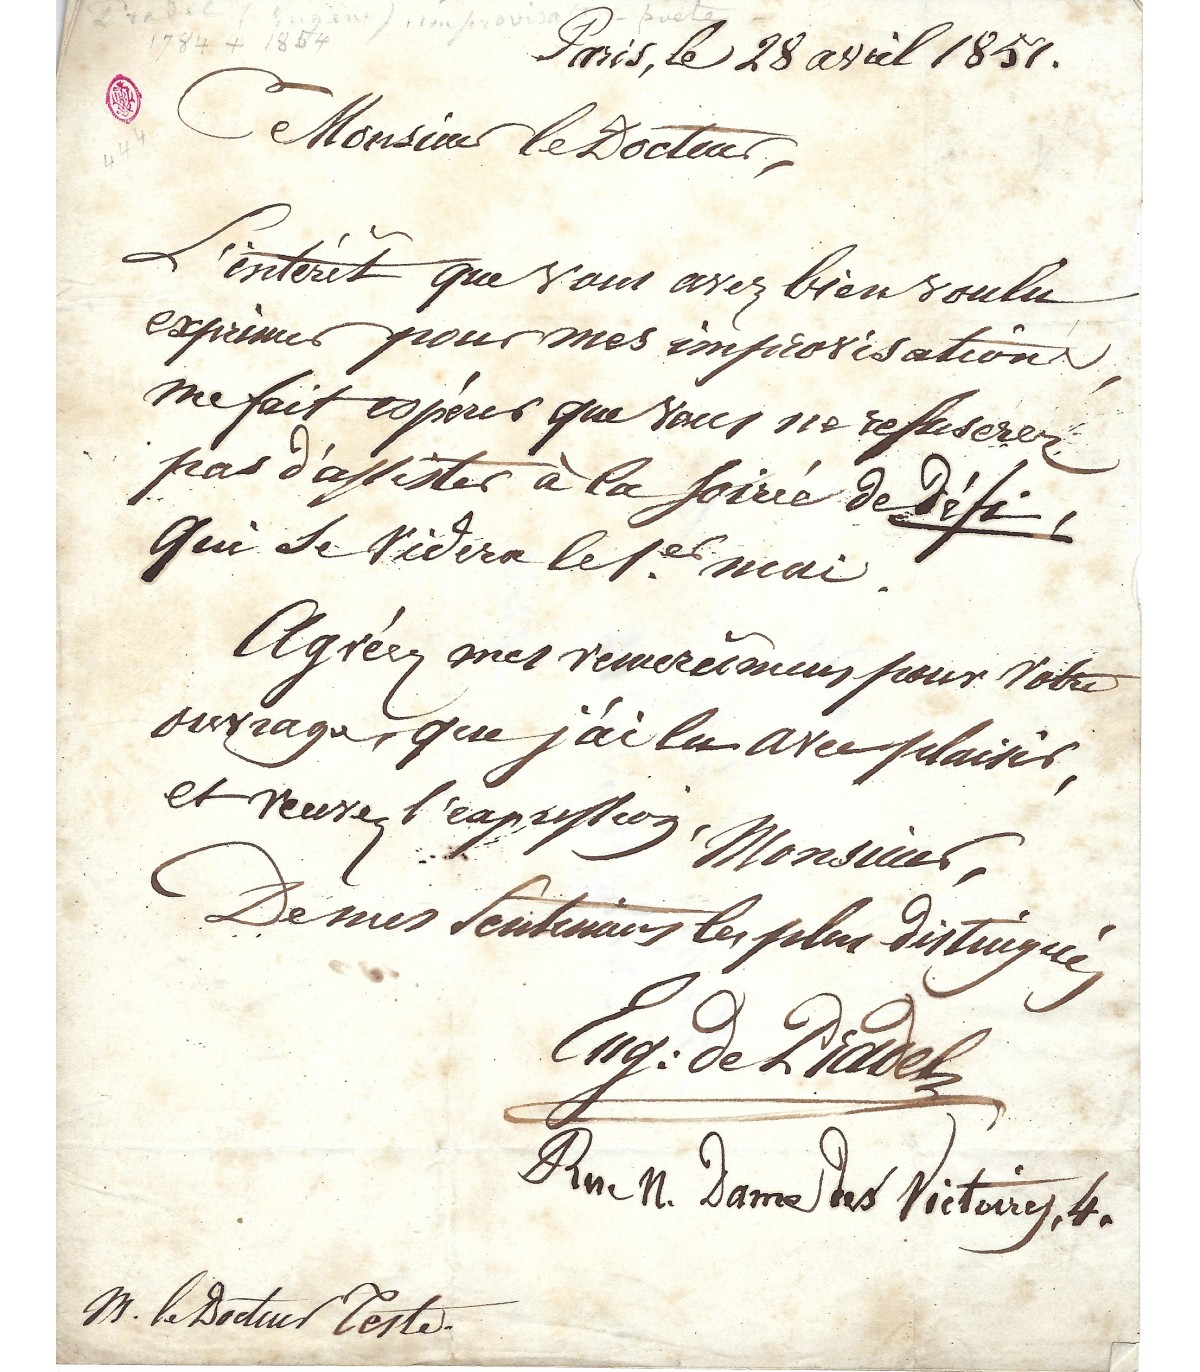 Pradel (Eugène) improvisateur - poète -
1784 + 1854
Paris, le 28 avril 1851.
444
Monsieur le Docteur,
L'intérêt que vous avez bien voulu
exprimer pour mes improvisations,
me fait espérer que vous ne refuserez
pas d'assister à la soirée de Défi,
qui se videra le 1.er mai.
Agréez mes remercîmens pour votre
ouvrage, que j'ai lu avec plaisir,
et recevez l'expression, Monsieur,
De mes sentimens les plus distingués
Eug: de Pradel
Rue N. Dame des Victoires, 4.
M. le Docteur Teste.